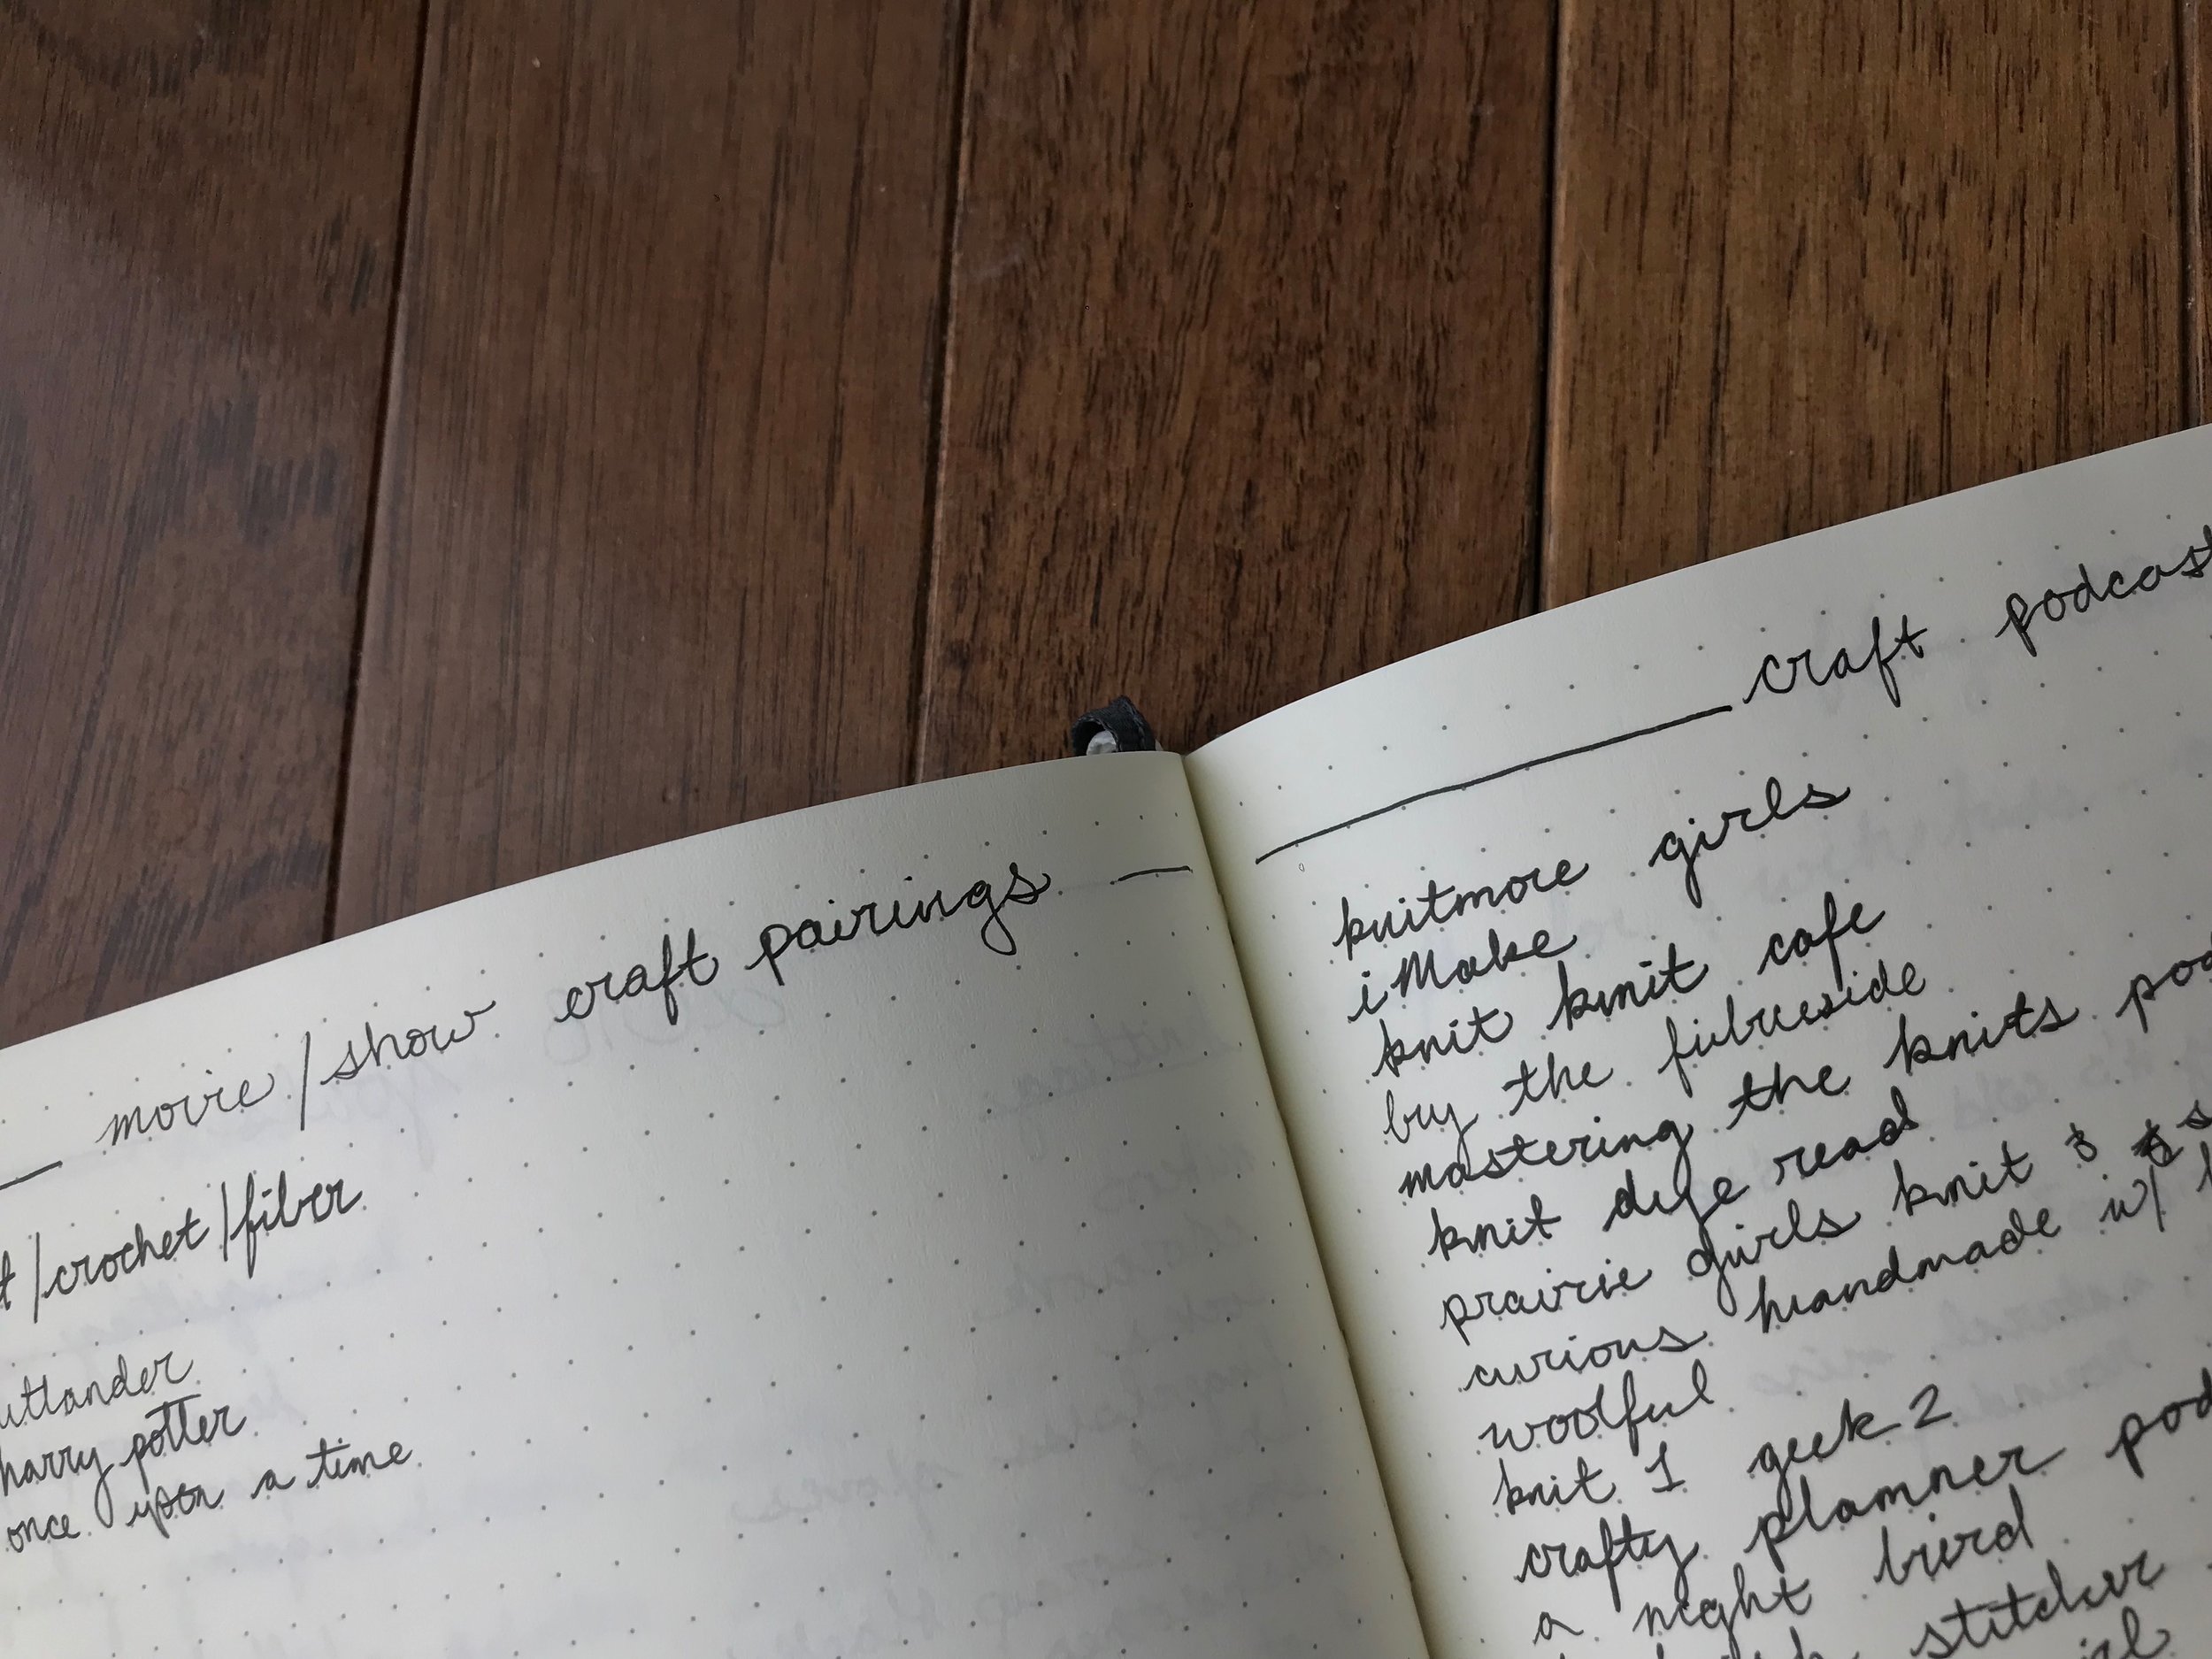 movie/show craft pairings
/crochet/fiber
utlander
harry potter
once upon a time
craft podcast
knitmore girls
iMake
knit knit cafe
by the fibreside
mastering the knits pod
knit dye read
prairie girls knit &
curious handmade w/
woolful
knit 1 geek 2
crafty planner pod
a night bird
stitcher